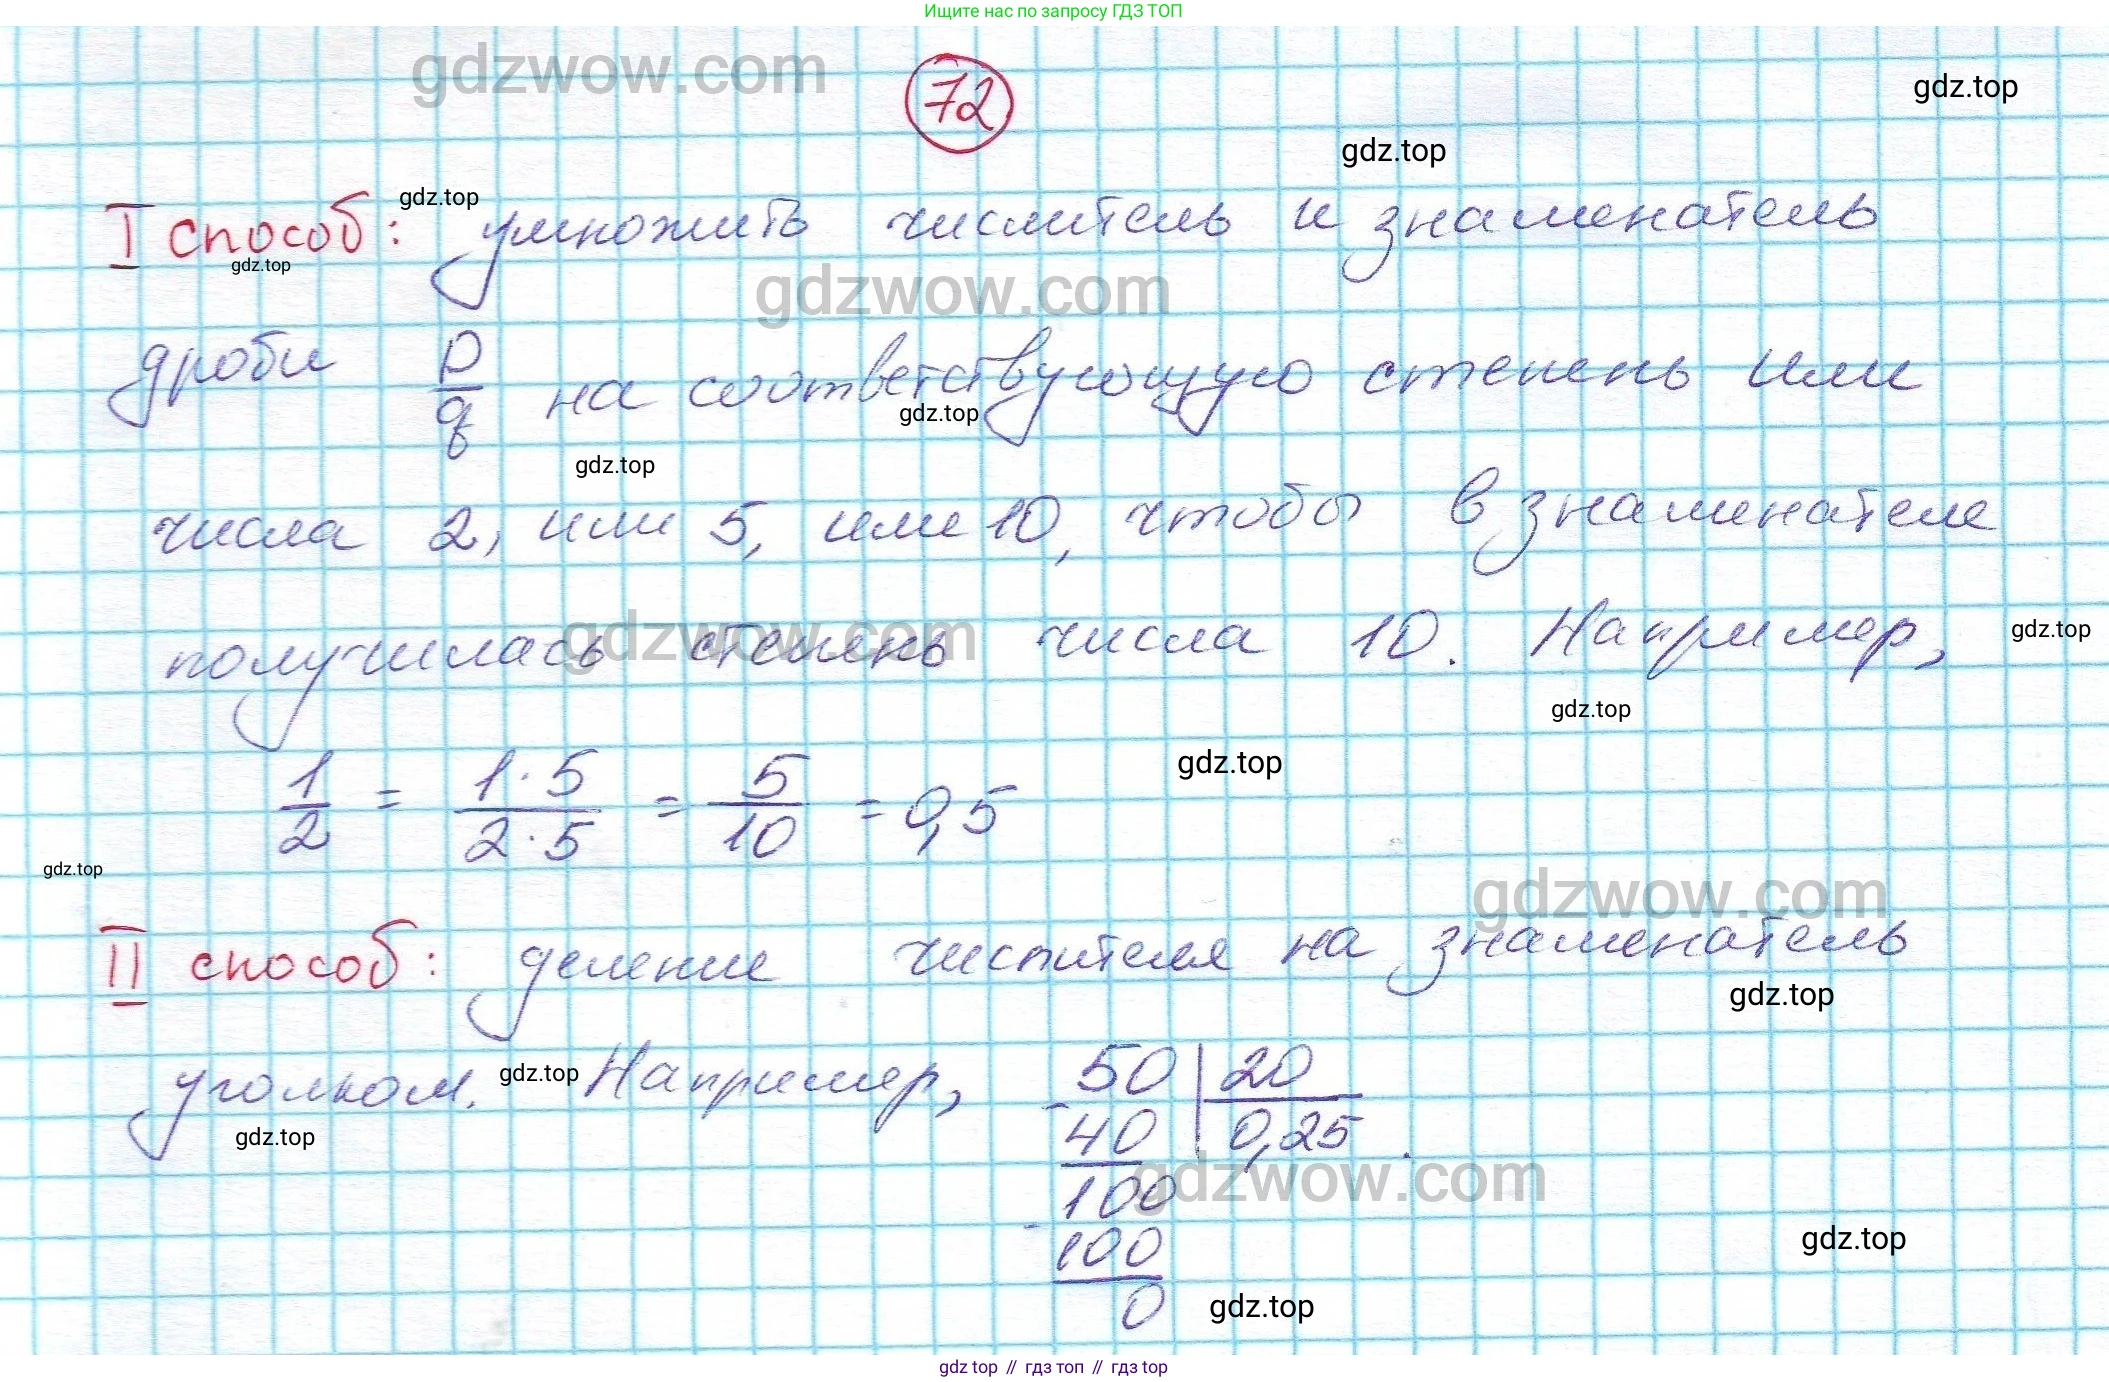 Ищите нас по запросу ГДЗ ТОП
gdzwow.com
72
gdz.top
gdz.top
I способ: умножить числитель и знаменатель
gdz.top
gdz.top
gdzwow.com
дроби p/q на соответствующую степень или
gdz.top
gdz.top
числа 2, или 5, или 10, чтобы в знаменателе
получилась степень числа 10. Например,
gdzwow.com
gdz.top
gdz.top
1/2 = 1·5/2·5 = 5/10 = 0,5
gdz.top
gdz.top
gdzwow.com
II способ: деление числителя на знаменатель
gdz.top
уголком. Например, 50 | 20
gdz.top
- 40 | 0,25 .
gdz.top
gdzwow.com
100
- 100
gdz.top
0
gdz.top
gdz top // гдз топ // гдз top